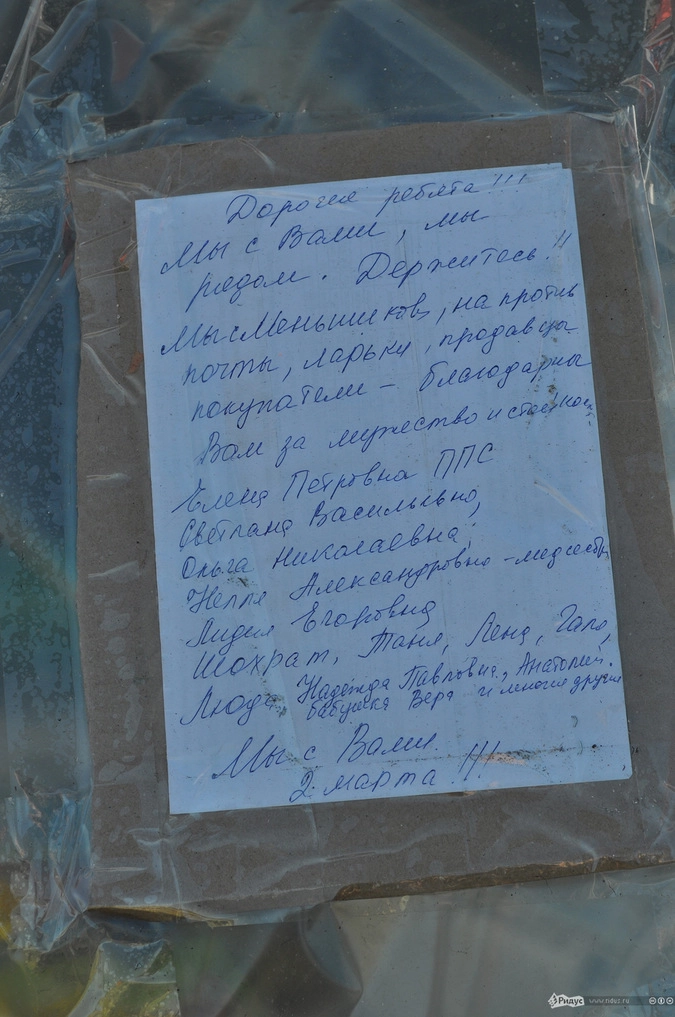 Дорогие ребята!!!
Мы с Вами, мы
рядом. Держитесь!!
Мы с Меньшиков, на против
почты, ларьки, продавцы
покупатели - благодарны
Вам за мужество и стойкость
Елена Петровна ППС
Светлана Васильевна,
Ольга Николаевна,
Нелля Александровна - медсестр
Лидия Егоровна
Шохрат, Таня, Лена, Галя,
Люда, Надежда Павловна, Анатолий.
бабушка Вера и многие другие
Мы с Вами.
2 марта !!!
Ридус www.ridus.ru